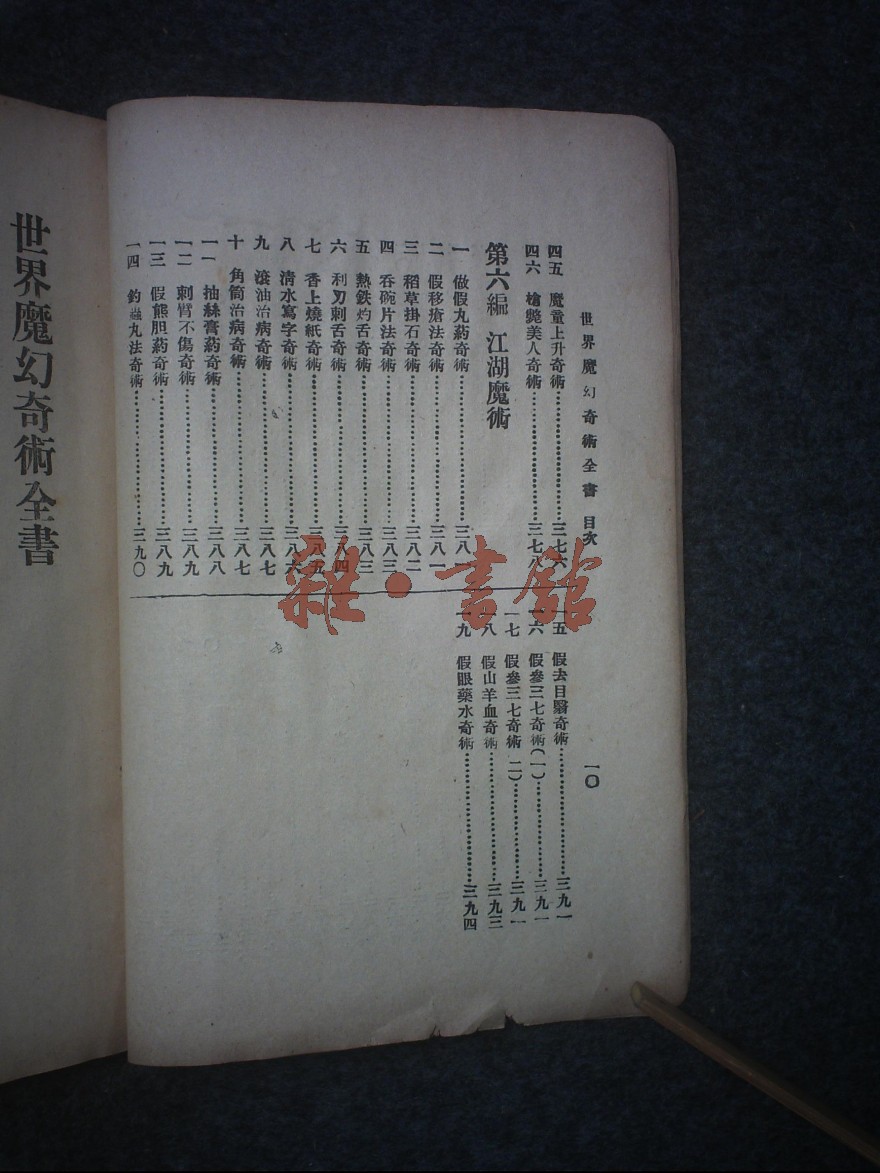 世界魔幻奇術全書 目次
四五 魔童上升奇術……三七六
四六 槍斃美人奇術……三七八
第六編 江湖魔術
一 做假丸药奇術……三八一
二 假移瘡法奇術……三八一
三 稻草掛石奇術……三八二
四 吞碗片法奇術……三八三
五 熱鉄灼舌奇術……三八三
六 利刀刺舌奇術……三八四
七 香上燒紙奇術……三八五
八 清水寫字奇術……三八六
九 滾油治病奇術……三八七
十 角筒治病奇術……三八七
一一 抽絲膏药奇術……三八八
一二 刺臂不傷奇術……三八九
一三 假熊胆药奇術……三八九
一四 釣蟲丸法奇術……三九〇
一五 假去目翳奇術……三九一
一六 假參三七奇術(一)……三九一
一七 假參三七奇術 二)……三九一
一八 假山羊血奇術……三九三
一九 假眼藥水奇術……三九四
一〇
世界魔幻奇術全書
雜·書館